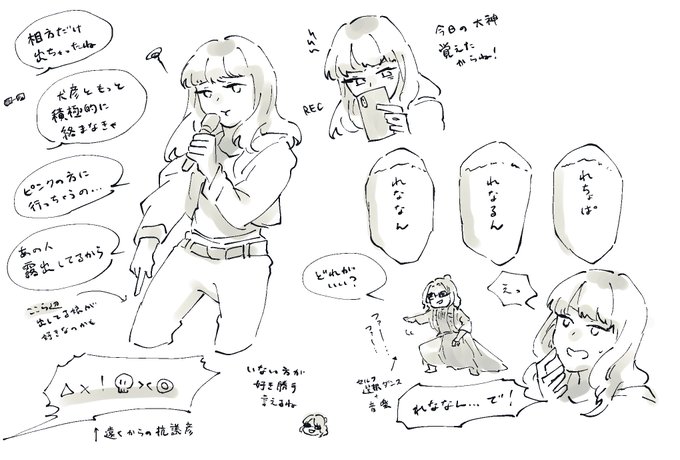 相方だけ
出ちゃったね
犬彦ともっと
積極的に
絡まなきゃ
ピンクの方に
行っちゃうの…
あの人
露出してるから
ここら辺
出してる娘が
好きなのかも
△×！><◎
↑遠くからの抗議彦
いない方が
好き勝手
言えるね
REC
今日の犬神
覚えた
からね！
れちょぱ。
れなるん
れななん
どれが
いい？
ファー…
フー…
セルフ
選択ダンス
+
音楽
えっ
れななん…で！